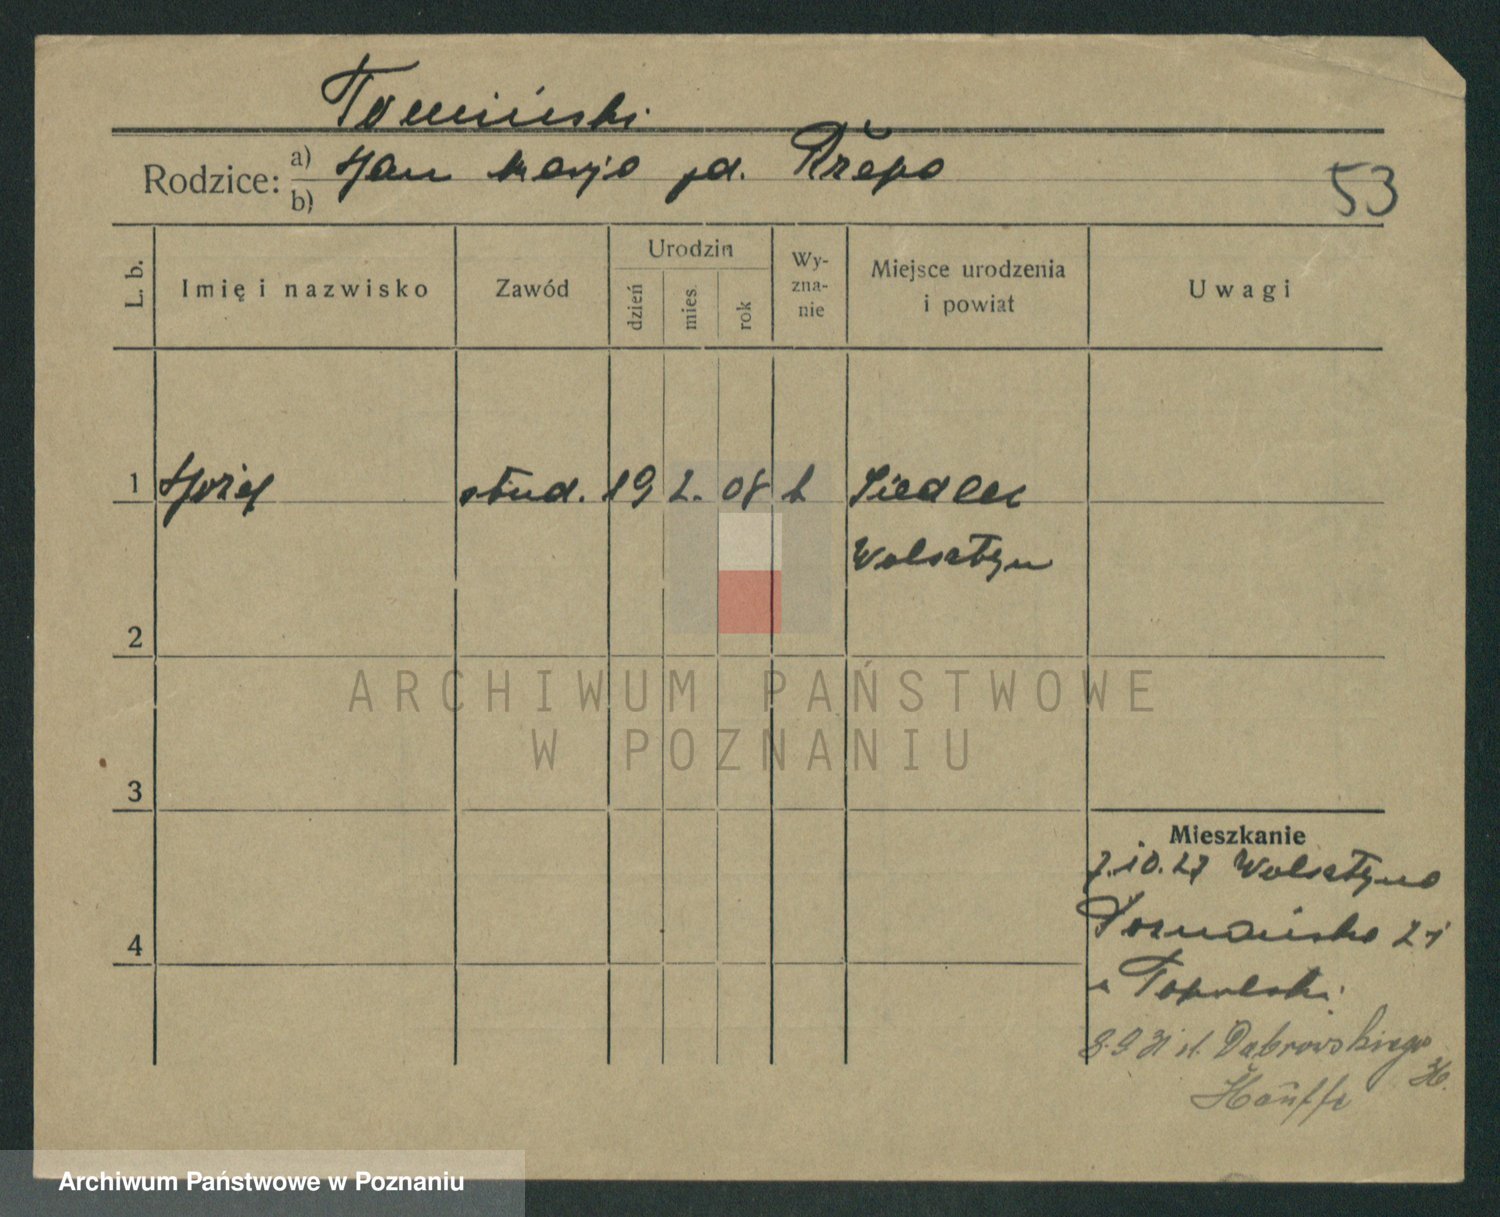 Tomiński
Rodzice: a) Jan Marja zd. Rzepa
b)
53
L. b.
Imię i nazwisko
Zawód
Urodzin
dzień
mies.
rok
Wy-
zna-
nie
Miejsce urodzenia
i powiat
Uwagi
1 Józef stud. 19 2. 08 k Siedlec
Wolsztyn
2
3
4
ARCHIWUM PAŃSTWOWE
W POZNANIU
Mieszkanie
7.10.27 Wolsztyna
Poznańska 21
u Topolski
8.9 31 ul. Dąbrowskiego
Archiwum Państwowe w Poznaniu